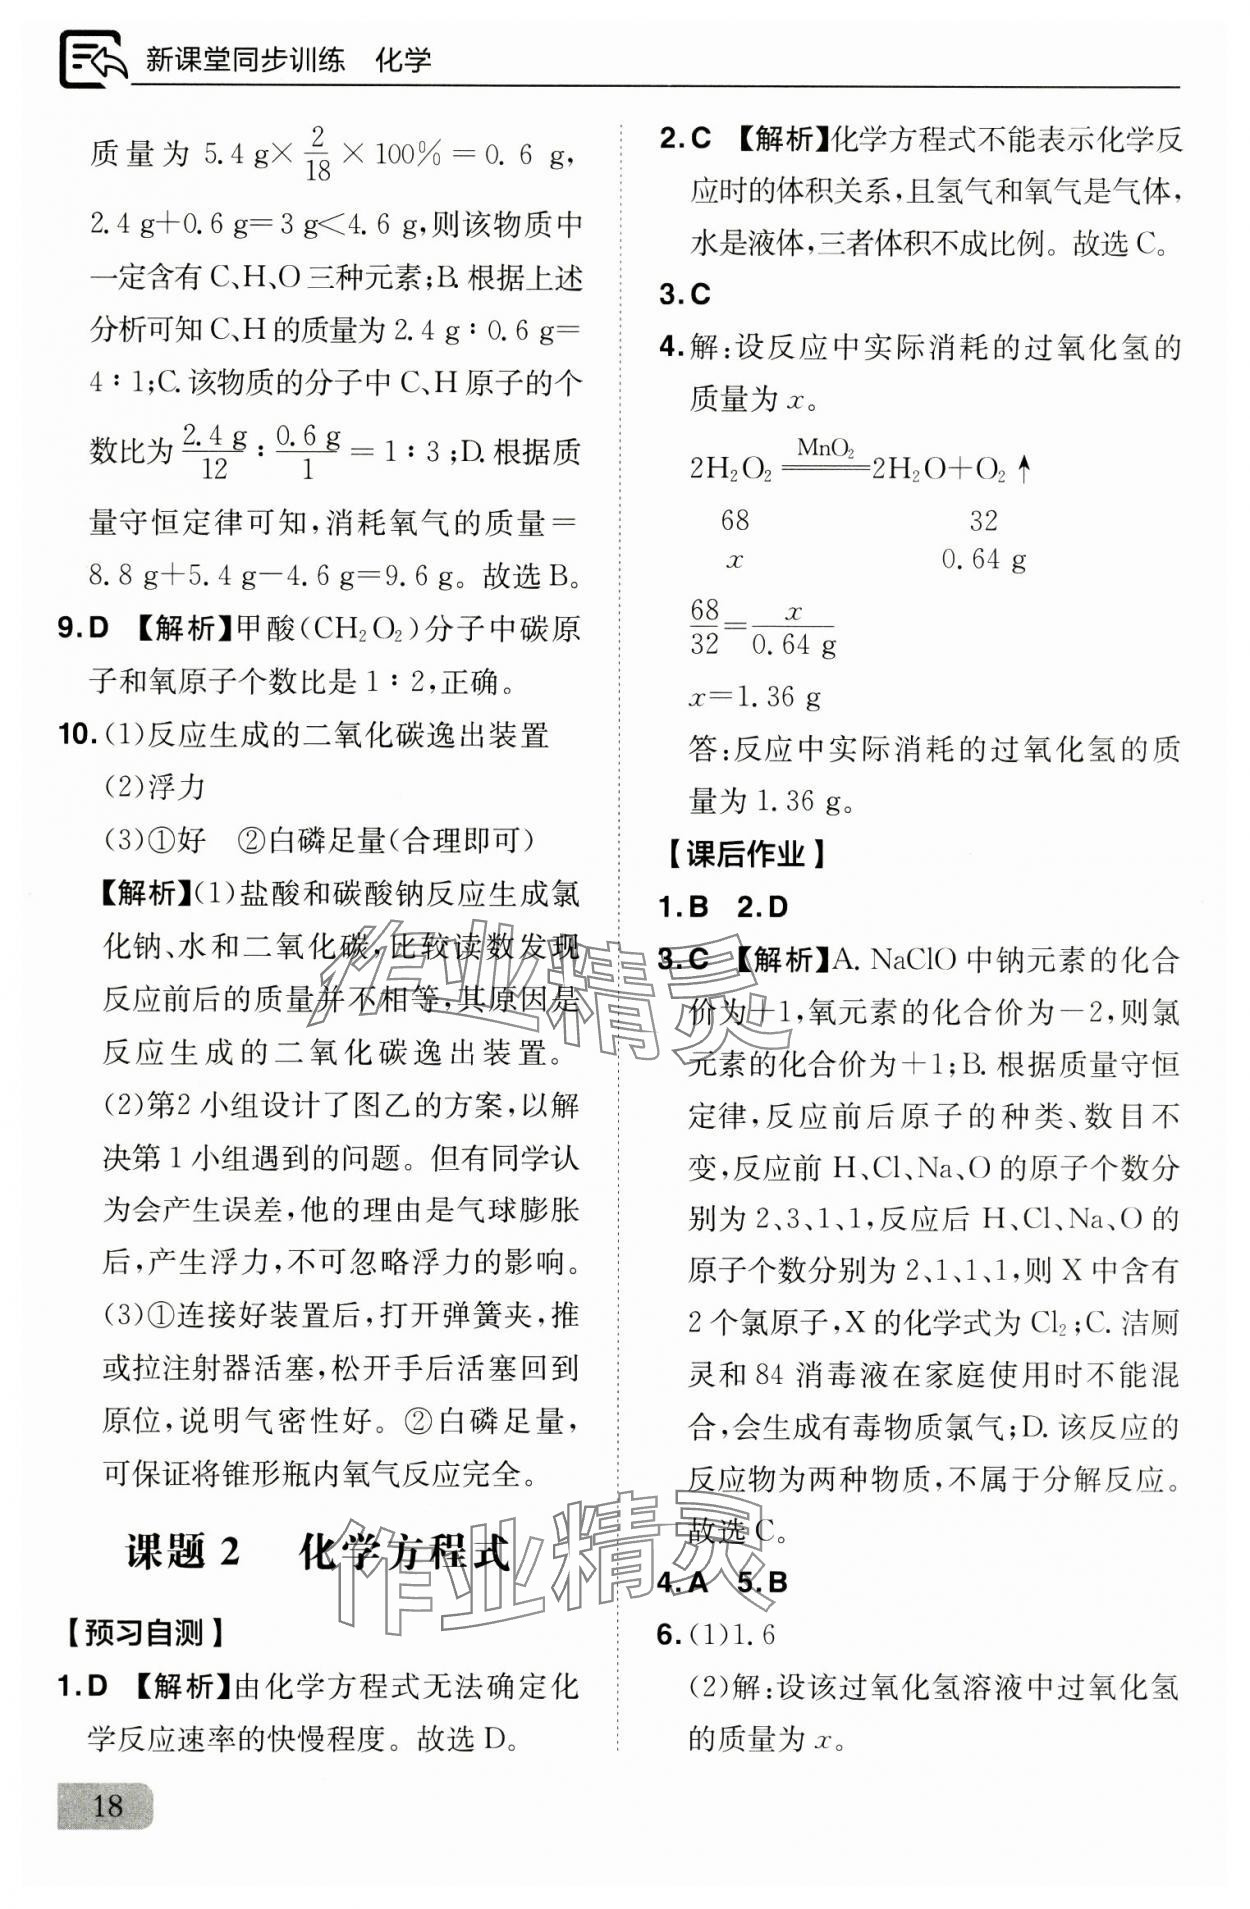 新课堂同步训练 化学
质量为 5.4 g×2/18×100%=0.6 g,
2.4 g+0.6 g=3 g<4.6 g,则该物质中
一定含有 C、H、O 三种元素;B. 根据上述
分析可知 C、H 的质量为 2.4 g∶0.6 g=
4∶1;C. 该物质的分子中 C、H 原子的个
数比为 2.4 g/12∶0.6 g/1=1∶3;D. 根据质
量守恒定律可知,消耗氧气的质量=
8.8 g+5.4 g-4.6 g=9.6 g。故选 B。
9. D 【解析】甲酸(CH₂O₂)分子中碳原
子和氧原子个数比是 1∶2,正确。
10. (1)反应生成的二氧化碳逸出装置
(2)浮力
(3)①好 ②白磷足量(合理即可)
【解析】(1)盐酸和碳酸钠反应生成氯
化钠、水和二氧化碳,比较读数发现
反应前后的质量并不相等,其原因是
反应生成的二氧化碳逸出装置。
(2)第2 小组设计了图乙的方案,以解
决第 1 小组遇到的问题。但有同学认
为会产生误差,他的理由是气球膨胀
后,产生浮力,不可忽略浮力的影响。
(3)①连接好装置后,打开弹簧夹,推
或拉注射器活塞,松开手后活塞回到
原位,说明气密性好。②白磷足量,
可保证将锥形瓶内氧气反应完全。
课题 2 化学方程式
【预习自测】
1. D 【解析】由化学方程式无法确定化
学反应速率的快慢程度。故选 D。
2. C 【解析】化学方程式不能表示化学反
应时的体积关系,且氢气和氧气是气体,
水是液体,三者体积不成比例。故选 C。
3. C
4. 解:设反应中实际消耗的过氧化氢的
质量为 x。
MnO₂
2H₂O₂=====2H₂O+O₂↑
68 32
x 0.64 g
68/32=x/0.64 g
x=1.36 g
答:反应中实际消耗的过氧化氢的质
量为 1.36 g。
【课后作业】
1. B 2. D
3. C 【解析】A. NaClO 中钠元素的化合
价为+1,氧元素的化合价为-2,则氯
元素的化合价为+1;B. 根据质量守恒
定律,反应前后原子的种类、数目不
变,反应前 H、Cl、Na、O 的原子个数分
别为 2、3、1、1,反应后 H、Cl、Na、O 的
原子个数分别为 2、1、1、1,则 X 中含有
2 个氯原子,X 的化学式为 Cl₂;C. 洁厕
灵和 84 消毒液在家庭使用时不能混
合,会生成有毒物质氯气;D. 该反应的
反应物为两种物质,不属于分解反应。
故选 C。
4. A 5. B
6. (1)1.6
(2)解:设该过氧化氢溶液中过氧化氢
的质量为 x。
18
作业精灵
作业精灵